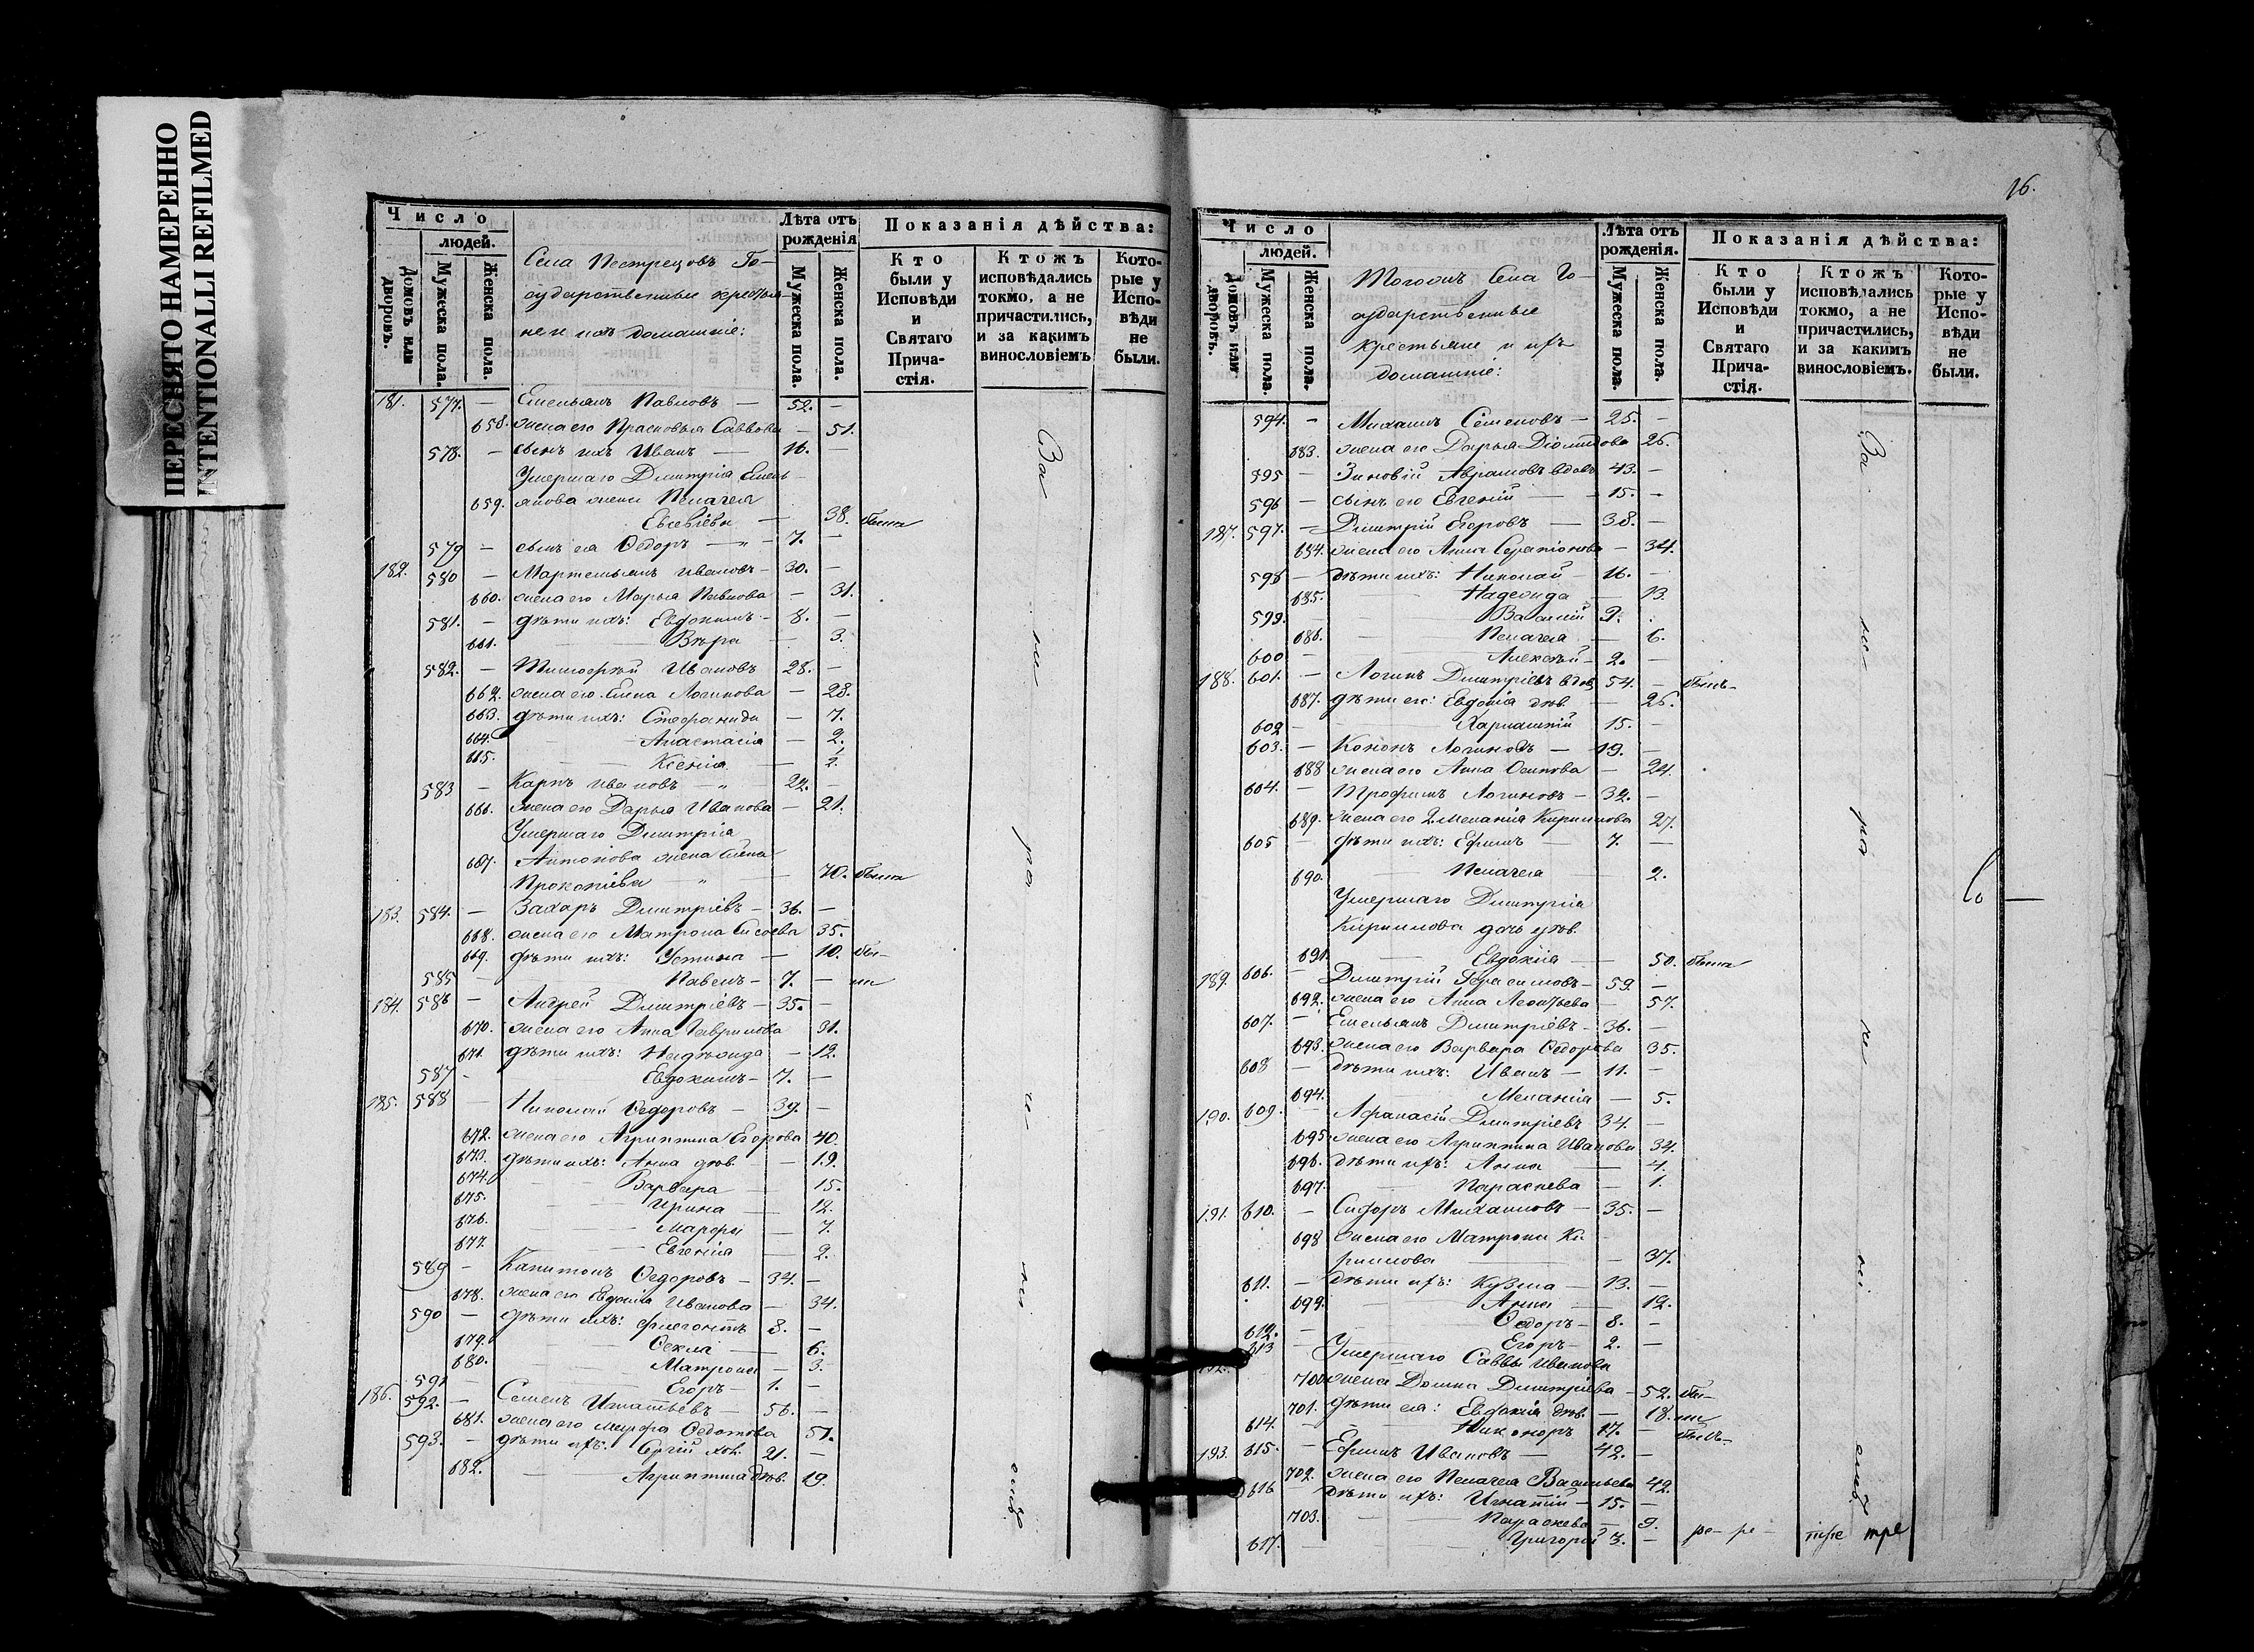 ПЕРЕСНЯТО НАМЕРЕННО
INTENTIONALLI REFILMED
Число
людей.
Домовъ или дворовъ.
Мужеска пола.
Женска пола.
Села Пестрецовъ Го-
сударственные крестья-
не и ихъ домашніе:
Лѣта отъ рожденія
Мужеска пола.
Женска пола.
Показанія дѣйства:
Кто были у Исповѣди и Святаго Прича-стія.
Ктожъ исповѣдались токмо, а не причастились, и за какимъ винословіемъ
Кото-рые у Испо-вѣди не были.
181. 577. — Емельянъ Павловъ — 52. —
658. жена его Прасковья Саввова — 51.
578. — сынъ ихъ Иванъ — 16. —
Умершаго Димитрія Емель-
659. янова жена Пелагея
Евсевіева — 38. была
579 — сынъ ея Ѳедоръ — 7. —
182. 580 — Мартемьянъ Ивановъ — 30. —
660. жена его Марья Павлова — 31.
581. — дѣти ихъ: Евдокимъ — 8. —
661. Вѣра — 3.
582. — Тимофей Ивановъ 28. —
662. жена его Елена Логинова — 28.
663. дѣти ихъ: Стефанида — 7.
664. Анастасія — 2.
665. Ксенія — 2.
583 — Карпъ Ивановъ — 22. —
666. жена его Дарья Иванова — 21.
Умершаго Димитрія
667. Антонова жена Елена
Прокопіева — 70. была
183. 584. — Захаръ Димитріевъ — 36. —
668. жена его Матрона Сысоева 35.
669. дѣти ихъ: Устина — 10. бы-
585 — Павелъ — 7. — ли
184. 586 — Андрей Димитріевъ — 35. —
670. жена его Анна Гаврилова 31.
671. дѣти ихъ: Надежда — 12.
587 — Евдокимъ — 7. —
185. 588 — Николай Ѳедоровъ — 39. —
672. жена его Агриппина Егорова 40.
673. дѣти ихъ: Анна дѣв. — 19.
674. Варвара — 15.
675. Ирина — 12.
676. Марфа — 7.
677. Евгенія — 2.
589 — Капитонъ Ѳедоровъ — 34. —
678. жена его Евдокія Иванова — 34.
590 — дѣти ихъ: Флегонтъ 8. —
679. Ѳекла — 6.
680. Матрона — 3.
591 — Егоръ — 1. —
186. 592. — Семенъ Игнатьевъ — 56. —
681. жена его Марфа Ѳедотова 51.
593. — дѣти ихъ: Сергій хол. 21. —
682. — Агриппина дѣв. 19.
За
не-
ра
и-
не
16.
Число
людей.
Домовъ или дворовъ.
Мужеска пола.
Женска пола.
Тогожъ Села Го-
сударственные
крестьяне и ихъ
домашніе:
Лѣта отъ рожденія.
Мужеска пола.
Женска пола.
Показанія дѣйства:
Кто были у Исповѣди и Святаго Прича-стія.
Ктожъ исповѣдались токмо, а не причастились, и за какимъ винословіемъ.
Кото-рые у Испо-вѣди не были.
594. — Михаилъ Семеновъ — 25. —
683. жена его Дарья Діомидова 26.
595 — Зиновій Аврамовъ вдовъ 43. —
596 — сынъ его Евгеній — 15. —
187. 597. — Димитрій Егоровъ — 38. —
684. жена его Анна Серапіонова — 34.
598 — дѣти ихъ: Николай — 16. —
685. Надежда — 13.
599. Василій 9.
686. Пелагея — 6.
600 — Алексѣй — 2. —
188. 601. — Логинъ Димитріевъ вдов. 54. — былъ-
687. дѣти его: Евдокія дѣв. — 26.
602 — Харлампій 15. —
603. — Кононъ Логиновъ — 19. —
688 жена его Анна Осипова — 24.
604. — Трофимъ Логиновъ — 32. —
689. жена его 2. Меланія Кириллова 27.
605 — дѣти ихъ: Ефимъ — 7. —
690. Пелагея — 2.
Умершаго Димитрія
Кириллова дочь дѣв.
691 Евдокія — 50. была
189. 606. — Димитрій Герасимовъ — 59. —
692. жена его Анна Леонтьева — 57.
607. — Емельянъ Димитріевъ — 36. —
693. жена его Варвара Ѳедорова 35.
608 — дѣти ихъ: Иванъ — 11. —
694. Меланія — 5.
190. 609. — Афанасій Димитріевъ 34. —
695. жена его Агриппина Иванова 34.
696. дѣти ихъ: Анна — 4.
697. Параскева — 1.
191. 610. — Сидоръ Михаиловъ — 35. —
698 жена его Матрона Ки-
риллова — 37.
611. — дѣти ихъ: Кузма — 13. —
699. Анна — 12.
612. — Ѳедоръ — 8. —
613 — Егоръ — 2. —
192. Умершаго Саввы Иванова
700 жена Домна Димитріева — 52. бы-
701. дѣти ея: Евдокія дѣв. — 18. ли
614. — Никоноръ 17. — былъ-
193. 615. — Ефимъ Ивановъ — 42. —
702. жена его Пелагея Васильева 42.
616 дѣти ихъ: Игнатій — 15. —
703. Параскева — 9.
617. Григорій 3. —
За
не-
ра